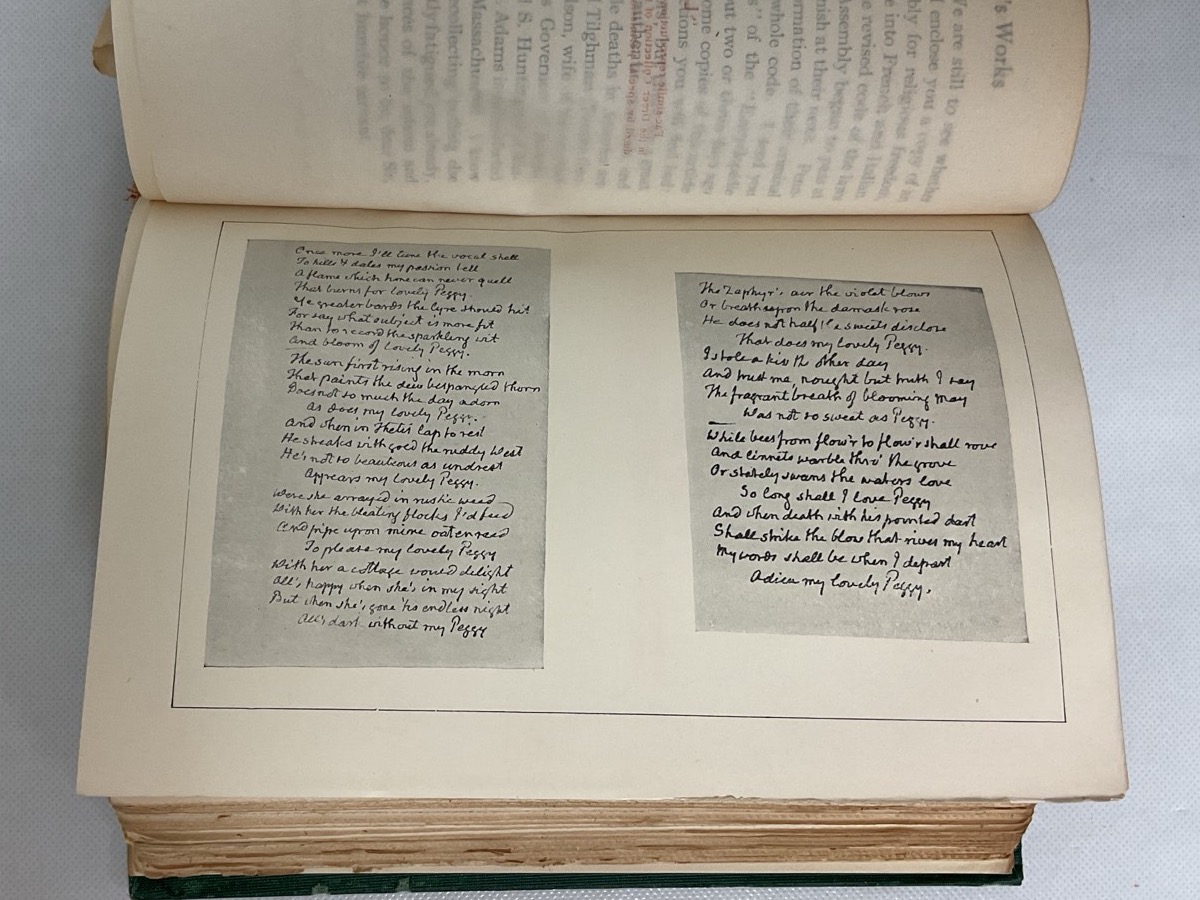 's Works
We are still to see whether
I enclose you a copy of it
bly for religious freedom
e into French and Italian
e revised code of the laws
Assembly began to pass at
nish at their next.
ormation of the criminal
whole code. I send you
s" of the "Encyclopédie
out two or three days ago
ome copies of the
tions you will
le deaths in
l Tilghman
lson, wife
s Governor
l S. Hunt
. Adams
Massachu
ecollecting during the
tly fatigue
Once more I'll tune the vocal shell
To hills & dales my passion tell
A flame which time can never quell
That burns for lovely Peggy.
Ye greater bards the lyre should hit
For say what subject is more fit
Than to record the sparkling wit
And bloom of Lovely Peggy.
The sun first rising in the morn
That paints the dew bespangled thorn
Does not so much the day adorn
As does my lovely Peggy.
And when in Thetis lap to rest
He streaks with gold the ruddy West
He's not so beauteous as undrest
Appears my lovely Peggy.
Were she arrayed in rustic weed
With her the bleating flocks I'd feed
And pipe upon mine oaten reed
To please my lovely Peggy
With her a cottage would delight
All's happy when she's in my sight
But when she's gone 'tis endless night
All's dark without my Peggy
The Zephyr's air the violet blows
Or breathes upon the damask rose
He does not half the sweets disclose
That does my lovely Peggy.
I stole a kiss th other day
And trust me, nought but truth I say
The fragrant breath of blooming May
Was not so sweet as Peggy.
While bees from flow'r to flow'r shall rove
And linnets warble thro' the grove
Or stately swans the waters love
So long shall I love Peggy
And when death with his pointed dart
Shall strike the blow that rives my heart
My words shall be when I depart
Adieu my lovely Peggy.